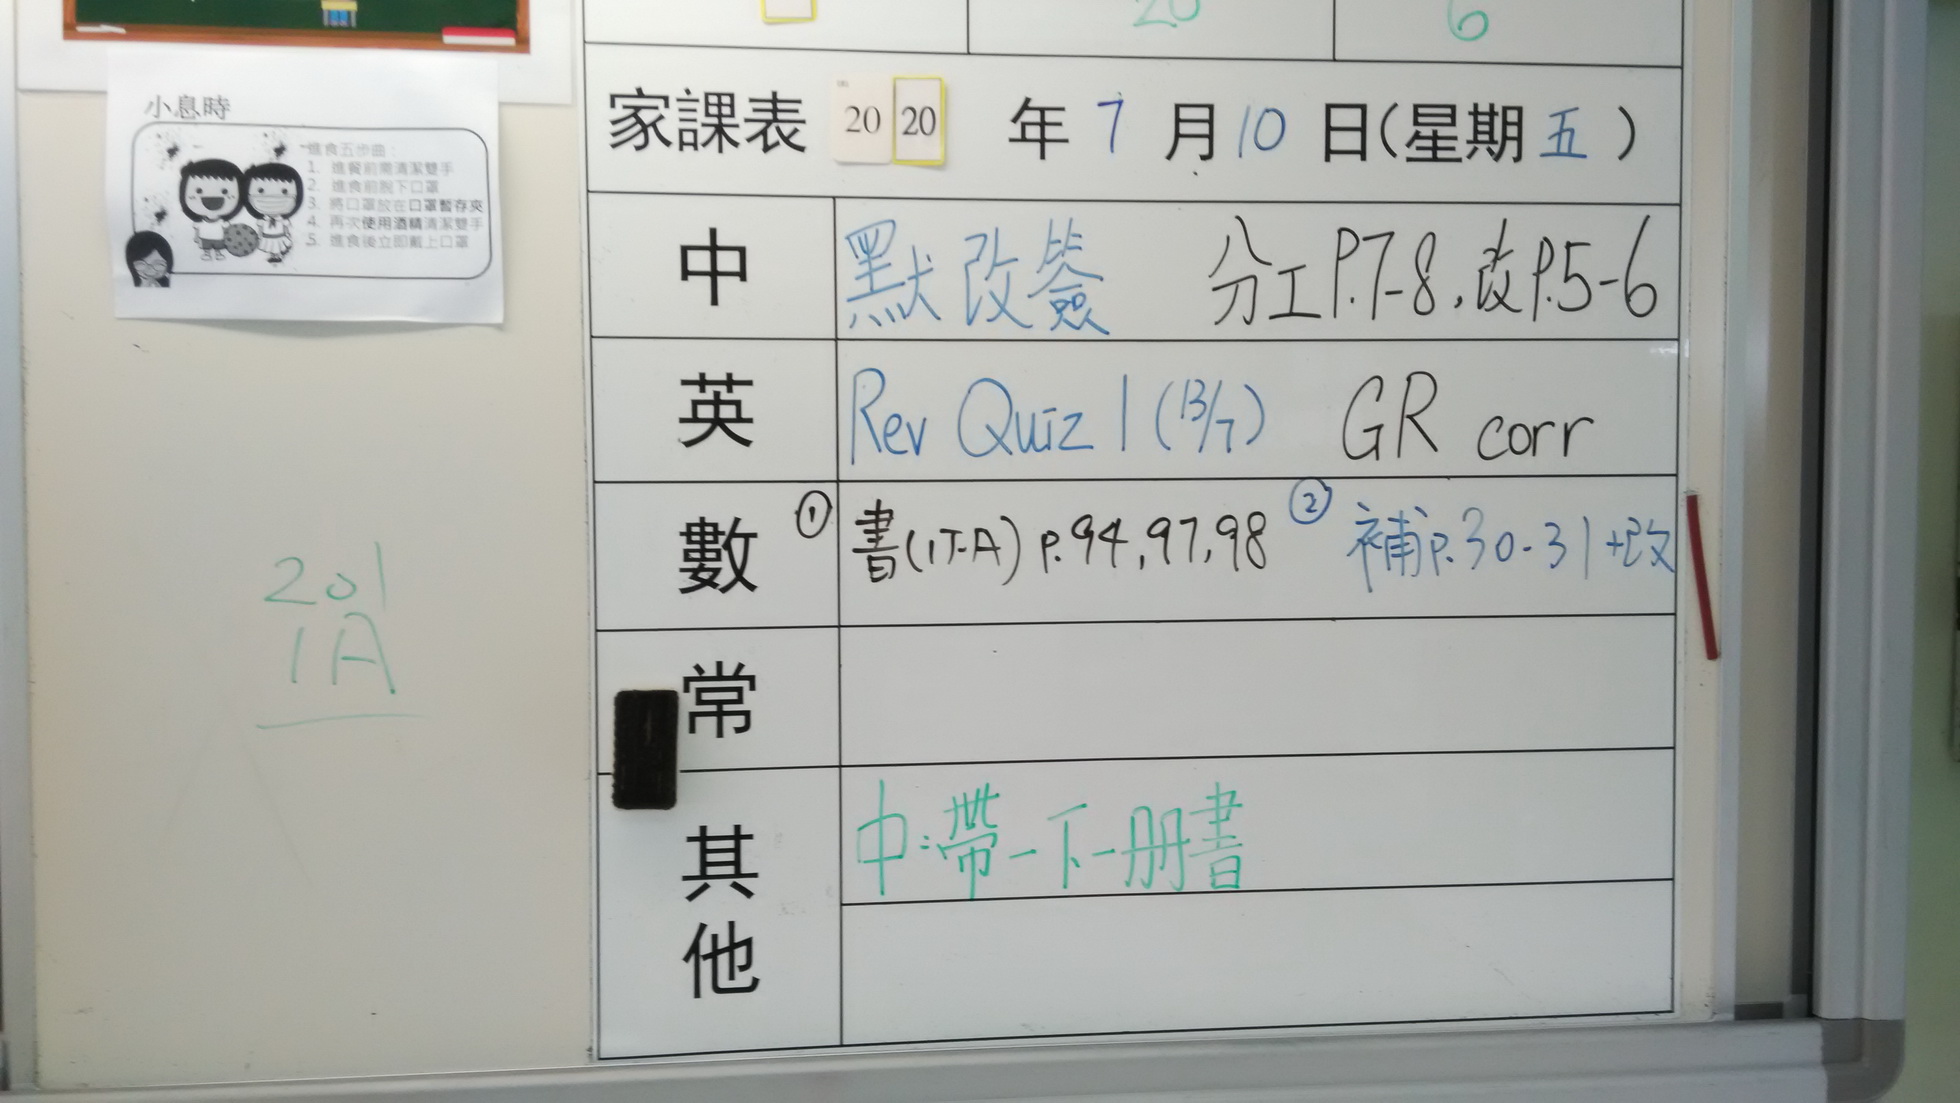 20 6
小息時
進食五步曲：
1. 進餐前需清潔雙手
2. 進食前脫下口罩
3. 將口罩放在口罩暫存夾
4. 再次使用酒精清潔雙手
5. 進食後立即戴上口罩
家課表 20 20 年 7 月 10 日(星期 五 )
中 默改簽 分工P.7-8,改P.5-6
英 Rev Quiz 1 (13/7) GR corr
數 ① 書(1T-A) p.94,97,98 ② 補p.30-31+改
常
其他 中:帶一下一册書
201
1A